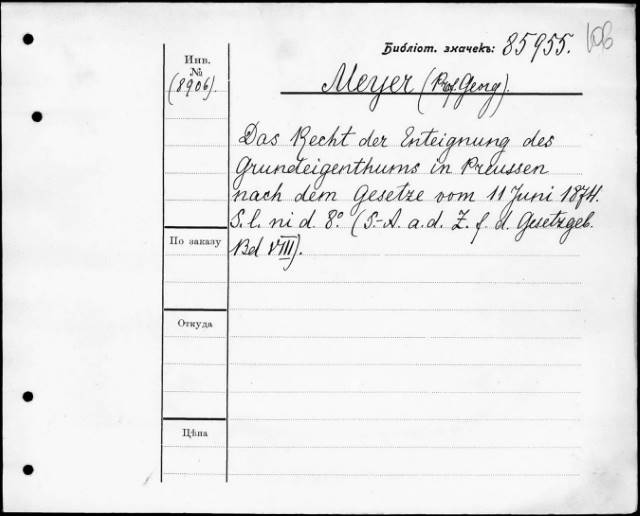 Библіот. значекъ: 85955. 106
Инв.
№
(8906).
Meyer (Prof. Georg).
Das Recht der Enteignung des
Grundeigenthums in Preussen
nach dem Gesetze vom 11 Juni 1874.
S. l. ni d. 8º. (S.-A. a. d. Z. f. d. Gesetzgeb.
Bd VIII).
По заказу
Откуда
Цѣна